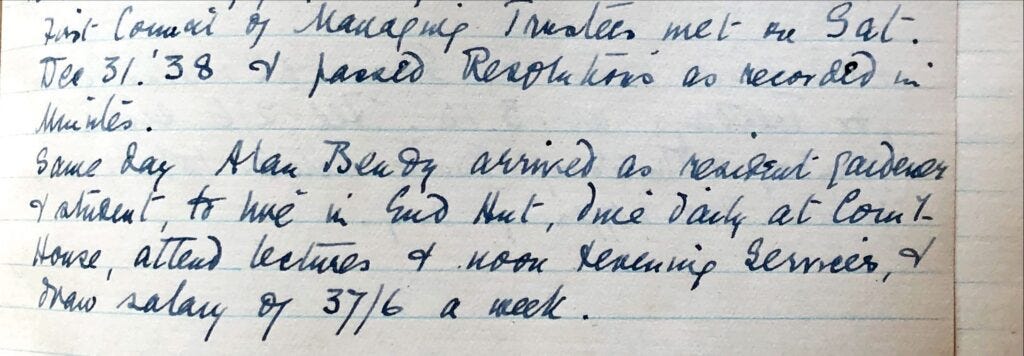 First Council of Managing Trustees met on Sat.
Dec 31. '38 & passed Resolutions as recorded in
Minutes.
Same day Alan Bendy arrived as resident gardener
& student, to live in End Hut, dine daily at Court
House, attend lectures & noon & evening Services, &
draw salary of 37/6 a week.